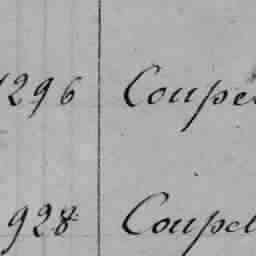 1296 Coupe
928 Coupel